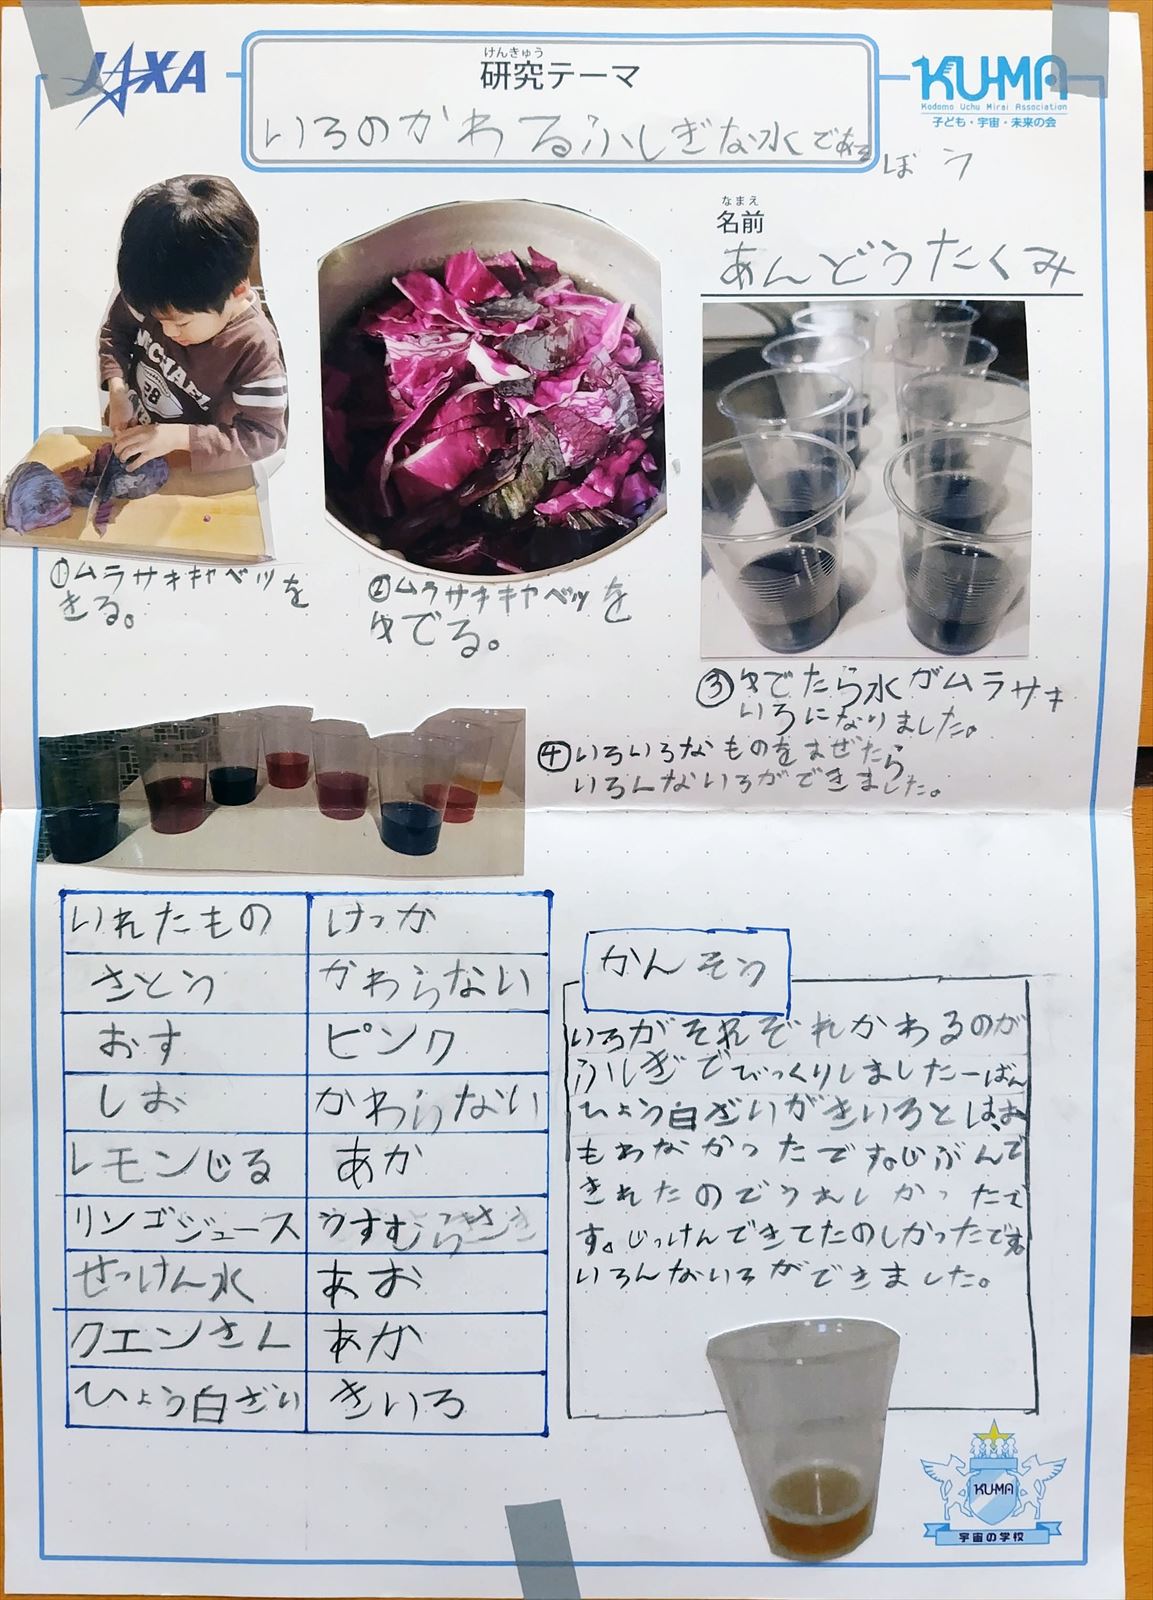 JAXA
けんきゅう
研究テーマ
KU-MA
Kodomo Uchu Mirai Association
子ども・宇宙・未来の会
いろのかわるふしぎな水であそぼう
なまえ
名前
あんどうたくみ
MICHAEL
①ムラサキキャベツを
きる。
②ムラサキキャベツを
ゆでる。
③ゆでたら水がムラサキ
いろになりました。
④いろいろなものをまぜたら
いろんないろができました。
いれたもの けっか
さとう かわらない
おす ピンク
しお かわらない
レモンじる あか
リンゴジュース うすむらさき
せっけん水 あお
クエンさん あか
ひょう白ざい きいろ
かんそう
いろがそれぞれかわるのが
ふしぎでびっくりしました一ばん
ひょう白ざいがきいろとは、お
もわなかったです。じぶんで
きれたのでうれしかったで
す。じっけんできてたのしかったです
いろんないろができました。
KU-MA
宇宙の学校